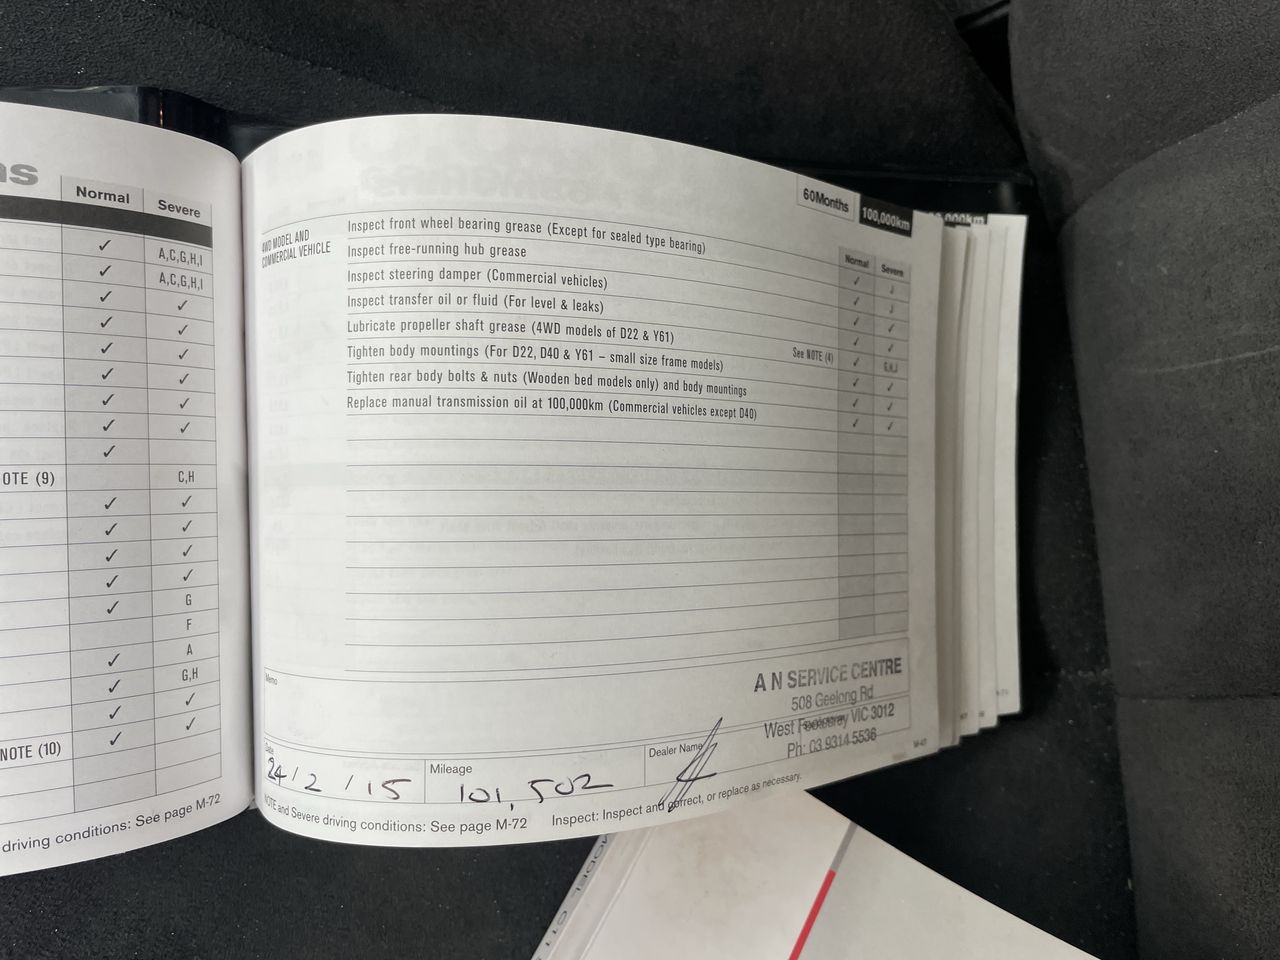 ns
Normal Severe
✓ A,C,G,H,I
✓ A,C,G,H,I
✓ ✓
✓ ✓
✓ ✓
✓ ✓
✓ ✓
✓ ✓
✓
OTE (9) C,H
✓ ✓
✓ ✓
✓ ✓
✓ ✓
✓ G
F
✓ A
✓ G,H
✓ ✓
NOTE (10) ✓ ✓
driving conditions: See page M-72
60Months 100,000km
Normal Severe
4WD MODEL AND
COMMERCIAL VEHICLE
Inspect front wheel bearing grease (Except for sealed type bearing) ✓ J
Inspect free-running hub grease ✓ J
Inspect steering damper (Commercial vehicles) ✓ ✓
Inspect transfer oil or fluid (For level & leaks) ✓ ✓
Lubricate propeller shaft grease (4WD models of D22 & Y61) See NOTE (4) ✓ G,H,J
Tighten body mountings (For D22, D40 & Y61 – small size frame models) ✓ ✓
Tighten rear body bolts & nuts (Wooden bed models only) and body mountings ✓ ✓
Replace manual transmission oil at 100,000km (Commercial vehicles except D40) ✓ ✓
Memo
A N SERVICE CENTRE
508 Geelong Rd
West Footscray VIC 3012
Ph: 03 9314 5536
Date 24/2/15
Mileage 101,502
Dealer Name
NOTE and Severe driving conditions: See page M-72 Inspect: Inspect and correct, or replace as necessary.